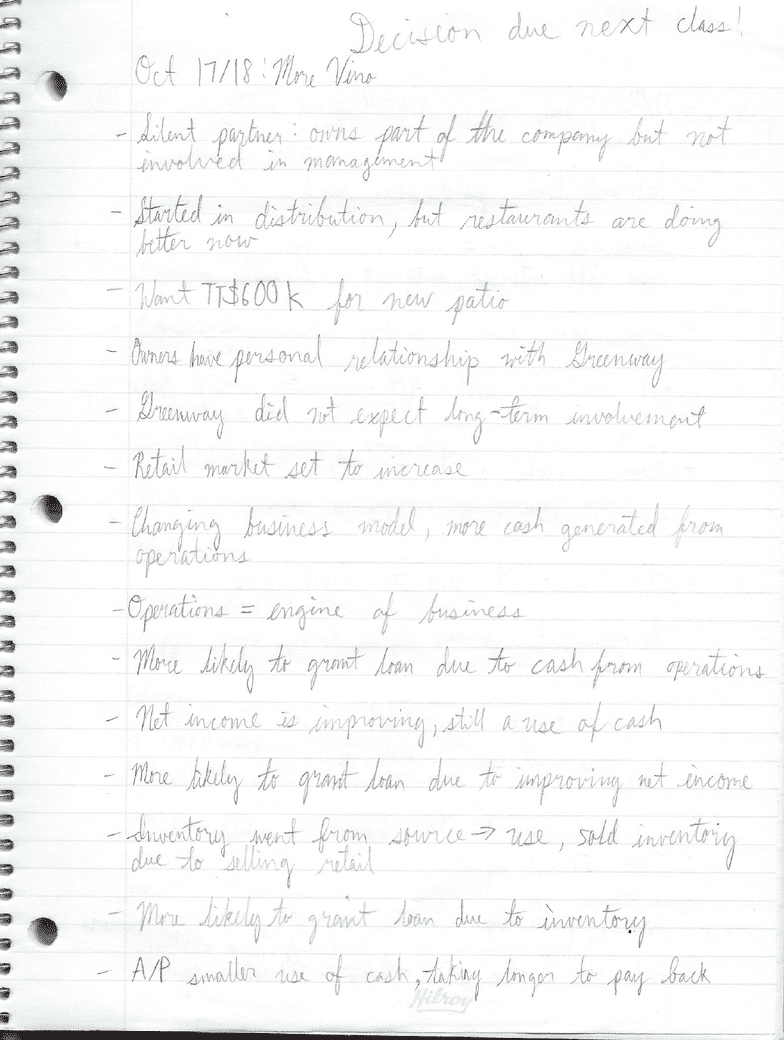 Decision due next class!
Oct 17/18: More Vino
- Silent partner: owns part of the company but not
involved in management
- Started in distribution, but restaurants are doing
better now
- Want TT$600k for new patio
- Owners have personal relationship with Greenway
- Greenway did not expect long-term involvement
- Retail market set to increase
- Changing business model, more cash generated from
operations
- Operations = engine of business
- More likely to grant loan due to cash from operations
- Net income is improving, still a use of cash
- More likely to grant loan due to improving net income
- Inventory went from source → use, sold inventory
due to selling retail
- More likely to grant loan due to inventory
- A/P smaller use of cash, taking longer to pay back
Hilroy